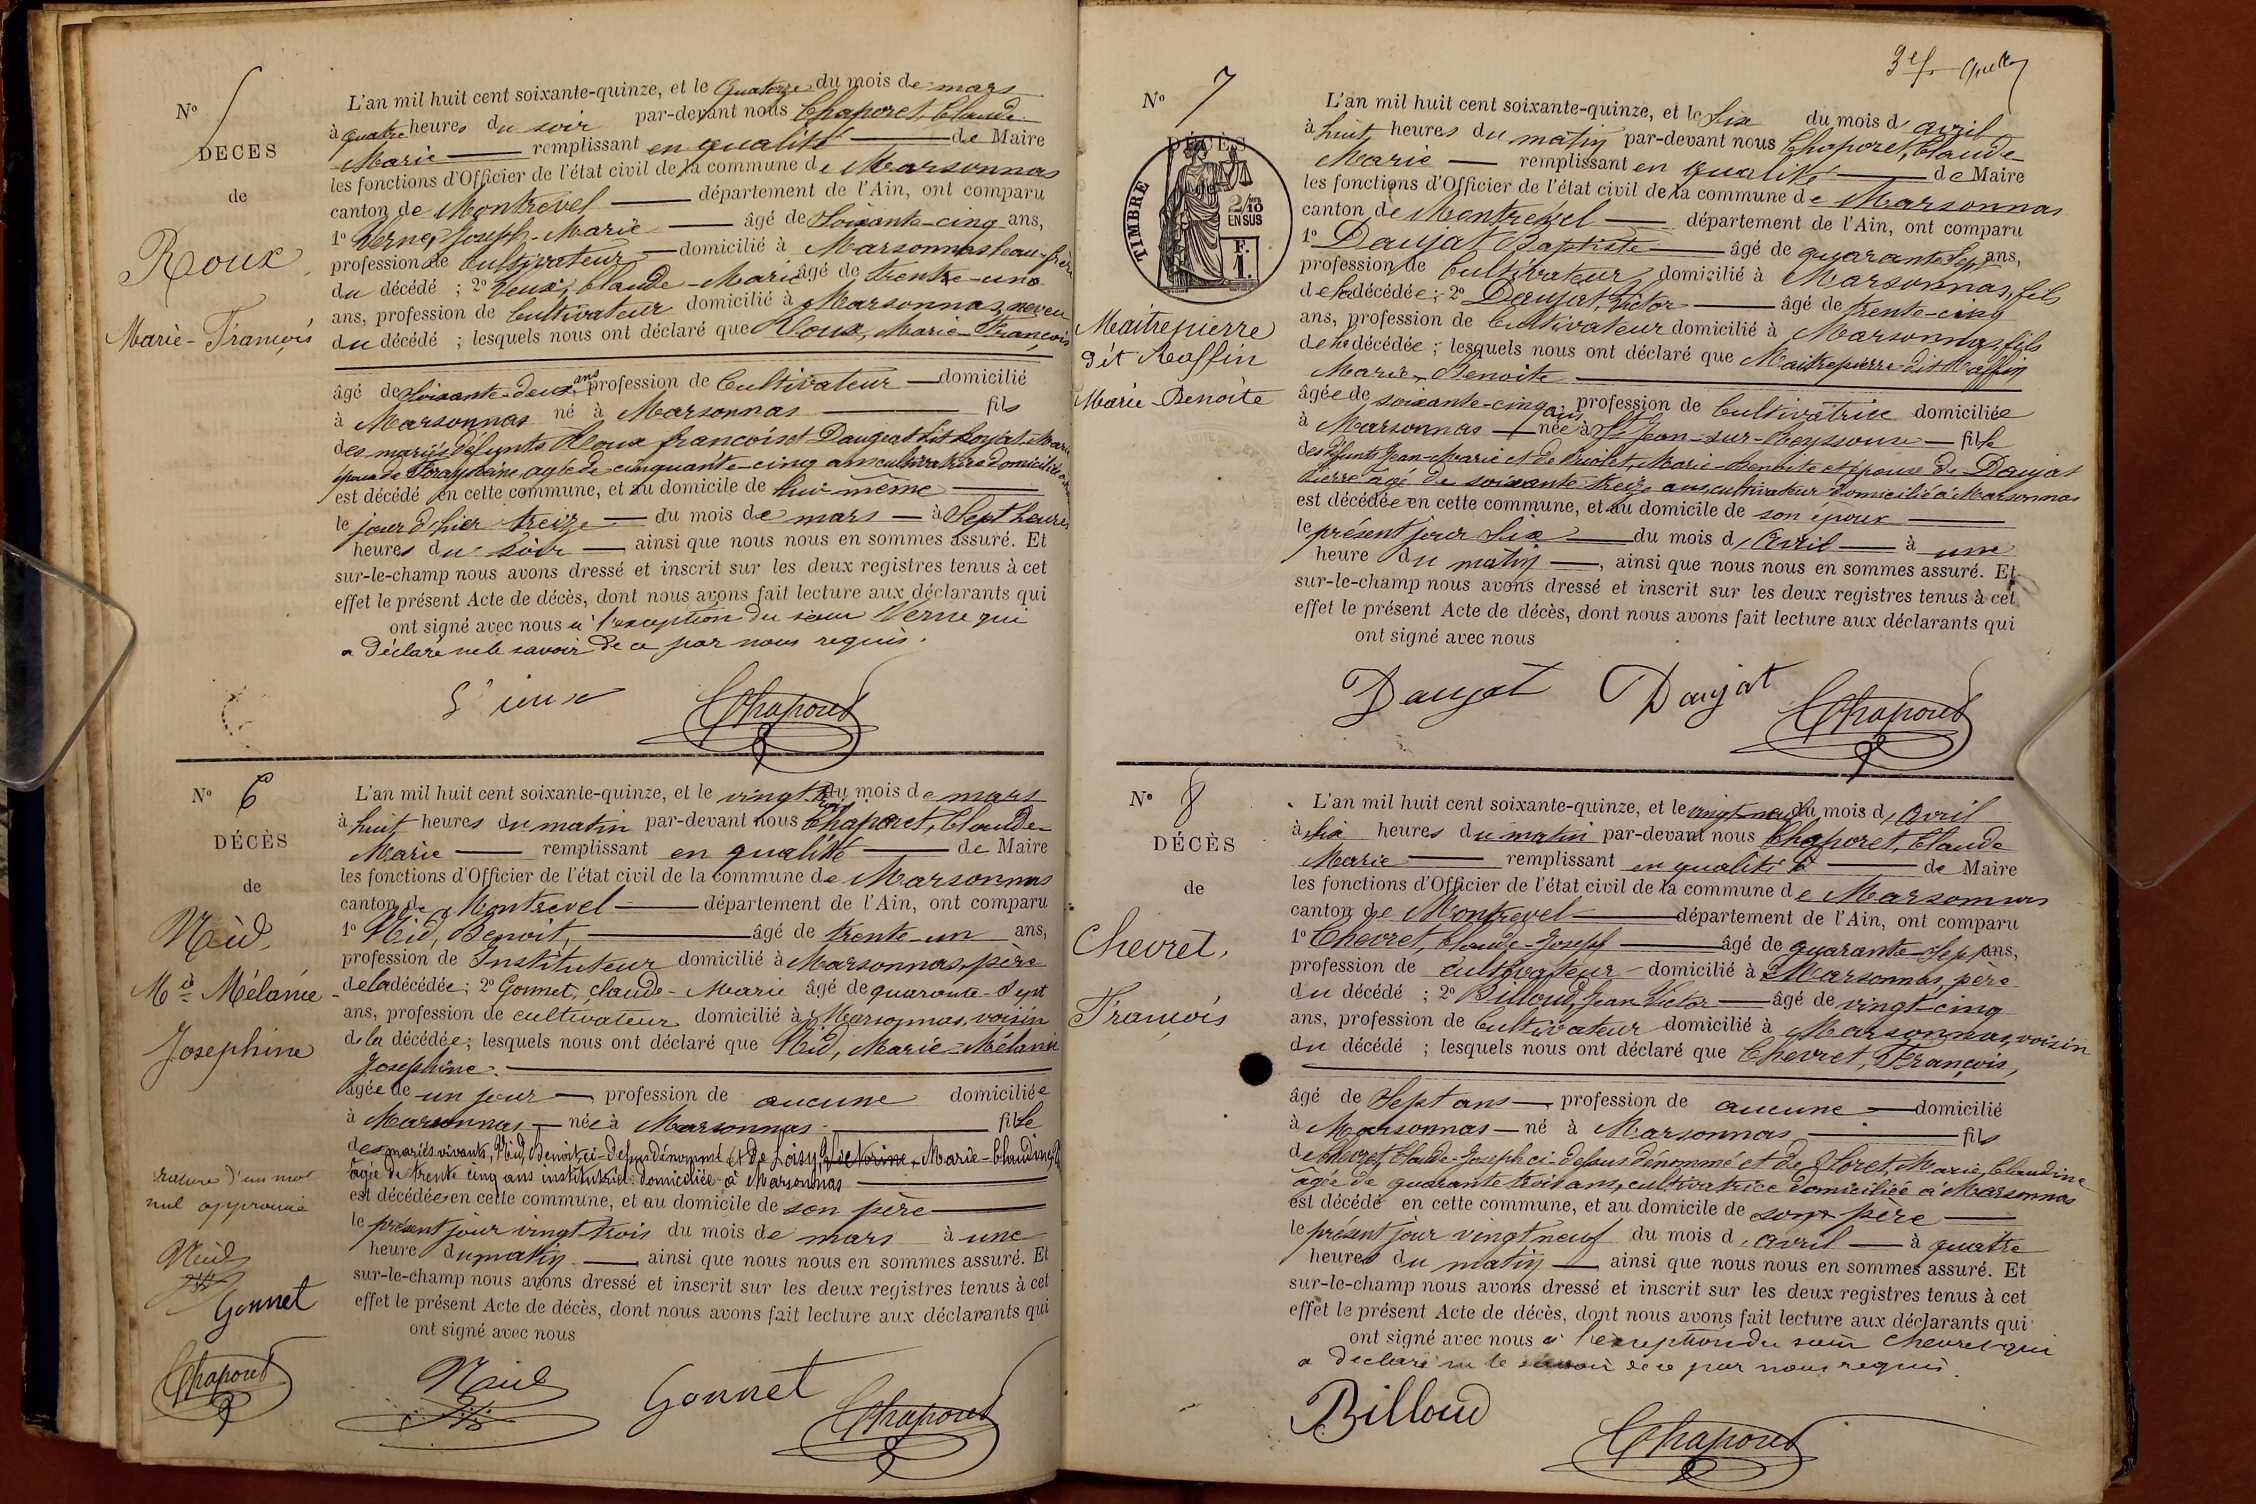 N° 5
DÉCÈS
de
Roux
Marie-François
L'an mil huit cent soixante-quinze, et le quatorze du mois de mars
à quatre heures du soir par-devant nous Chaporet, Claude
Marie remplissant en qualité de Maire
les fonctions d'Officier de l'état civil de la commune de Marsonnas
canton de Montrevel département de l'Ain, ont comparu
1° Verne, Joseph-Marie âgé de soixante-cinq ans,
profession de cultivateur domicilié à Marsonnas beau-frère
du décédé ; 2° Claude-Marie âgé de trente-uns
ans, profession de cultivateur domicilié à Marsonnas, neveu
du décédé ; lesquels nous ont déclaré que Roux, Marie-François
âgé de soixante-deux ans profession de Cultivateur domicilié
à Marsonnas né à Marsonnas fils
des mariés défunts Roux françois et Daugeat dit Marie
épouse de agée de cinquante-cinq ans cultivatrice domiciliée
est décédé en cette commune, et au domicile de lui-même
le jour d'hier treize du mois de mars à Sept heures
heures du soir ainsi que nous nous en sommes assuré. Et
sur-le-champ nous avons dressé et inscrit sur les deux registres tenus à cet
effet le présent Acte de décès, dont nous avons fait lecture aux déclarants qui
ont signé avec nous à l'exception du sieur Verne qui
a déclaré ne le savoir de ce par nous requis.
Chaporet
N° 6
DÉCÈS
de
Nid
Mie Mélanie
Josephine
L'an mil huit cent soixante-quinze, et le vingt trois du mois de mars
à huit heures du matin par-devant nous Chaporet, Claude-
Marie remplissant en qualité de Maire
les fonctions d'Officier de l'état civil de la commune de Marsonnas
canton de Montrevel département de l'Ain, ont comparu
1° Nid, Benoit, âgé de trente-un ans,
profession de Instituteur domicilié à Marsonnas, père
de la décédée ; 2° Gonnet, Claude-Marie âgé de quarante-sept
ans, profession de cultivateur domicilié à Marsonnas, voisin
de la décédée ; lesquels nous ont déclaré que Nid, Marie-Mélanie
Josephine.
âgée de un jour profession de aucune domiciliée
à Marsonnas née à Marsonnas fille
des mariés vivants, Nid, Benoit, ci-dessus dénommé et de Loisy, Victorine, Marie-Claudine
âgée de trente cinq ans institutrice domiciliée à Marsonnas
est décédée en cette commune, et au domicile de son père
le présent jour vingt trois du mois de mars à une
heure du matin ainsi que nous nous en sommes assuré. Et
sur-le-champ nous avons dressé et inscrit sur les deux registres tenus à cet
effet le présent Acte de décès, dont nous avons fait lecture aux déclarants qui
ont signé avec nous
rature d'un mot
nul approuvé
Nid
Gonnet
Chaporet
Nid Gonnet Chaporet
3e f.
N° 7
DÉCÈS
de
TIMBRE
2/10
EN SUS
F.
1.
Maitrepierre
dit Raffin
Marie-Benoite
L'an mil huit cent soixante-quinze, et le six du mois d'avril
à huit heures du matin par-devant nous Chaporet, Claude-
Marie remplissant en qualité de Maire
les fonctions d'Officier de l'état civil de la commune de Marsonnas
canton de Montrevel département de l'Ain, ont comparu
1° Daujat Baptiste âgé de quarante sept ans,
profession de Cultivateur domicilié à Marsonnas, fils
de la décédée ; 2° Daujat, Victor âgé de trente-cinq
ans, profession de Cultivateur domicilié à Marsonnas, fils
de la décédée ; lesquels nous ont déclaré que Maitrepierre dit Raffin
Marie-Benoite
âgée de soixante-cinq ans profession de Cultivatrice domiciliée
à Marsonnas née à St Jean-sur-Reyssouze fille
des défunts Jean-Marie et de Marie-Benoite et épouse de Daujat
Pierre âgé de soixante treize ans, cultivateur domicilié à Marsonnas
est décédée en cette commune, et au domicile de son époux
le présent jour six du mois d'Avril à une
heure du matin, ainsi que nous nous en sommes assuré. Et
sur-le-champ nous avons dressé et inscrit sur les deux registres tenus à cet
effet le présent Acte de décès, dont nous avons fait lecture aux déclarants qui
ont signé avec nous
Daujat Daujat Chaporet
N° 8
DÉCÈS
de
Chevret,
François
L'an mil huit cent soixante-quinze, et le vingt neuf du mois d'Avril
à six heures du matin par-devant nous Chaporet, Claude
Marie remplissant en qualité de Maire
les fonctions d'Officier de l'état civil de la commune de Marsonnas
canton de Montrevel département de l'Ain, ont comparu
1° Chevret, Claude-Joseph âgé de quarante-sept ans,
profession de cultivateur domicilié à Marsonnas, père
du décédé ; 2° Billoud, Jean Victor âgé de vingt-cinq
ans, profession de Cultivateur domicilié à Marsonnas, voisin
du décédé ; lesquels nous ont déclaré que Chevret, François,
âgé de Sept ans profession de aucune domicilié
à Marsonnas né à Marsonnas fils
de Chevret, Claude-Joseph ci-dessus dénommé et de Loret, Marie Claudine
âgée de quarante trois ans, cultivatrice domiciliée à Marsonnas
est décédé en cette commune, et au domicile de son père
le présent jour vingt neuf du mois d'avril à quatre
heures du matin ainsi que nous nous en sommes assuré. Et
sur-le-champ nous avons dressé et inscrit sur les deux registres tenus à cet
effet le présent Acte de décès, dont nous avons fait lecture aux déclarants qui
ont signé avec nous à l'exception du sieur Chevret qui
a déclaré ne le savoir de ce par nous requis.
Billoud Chaporet